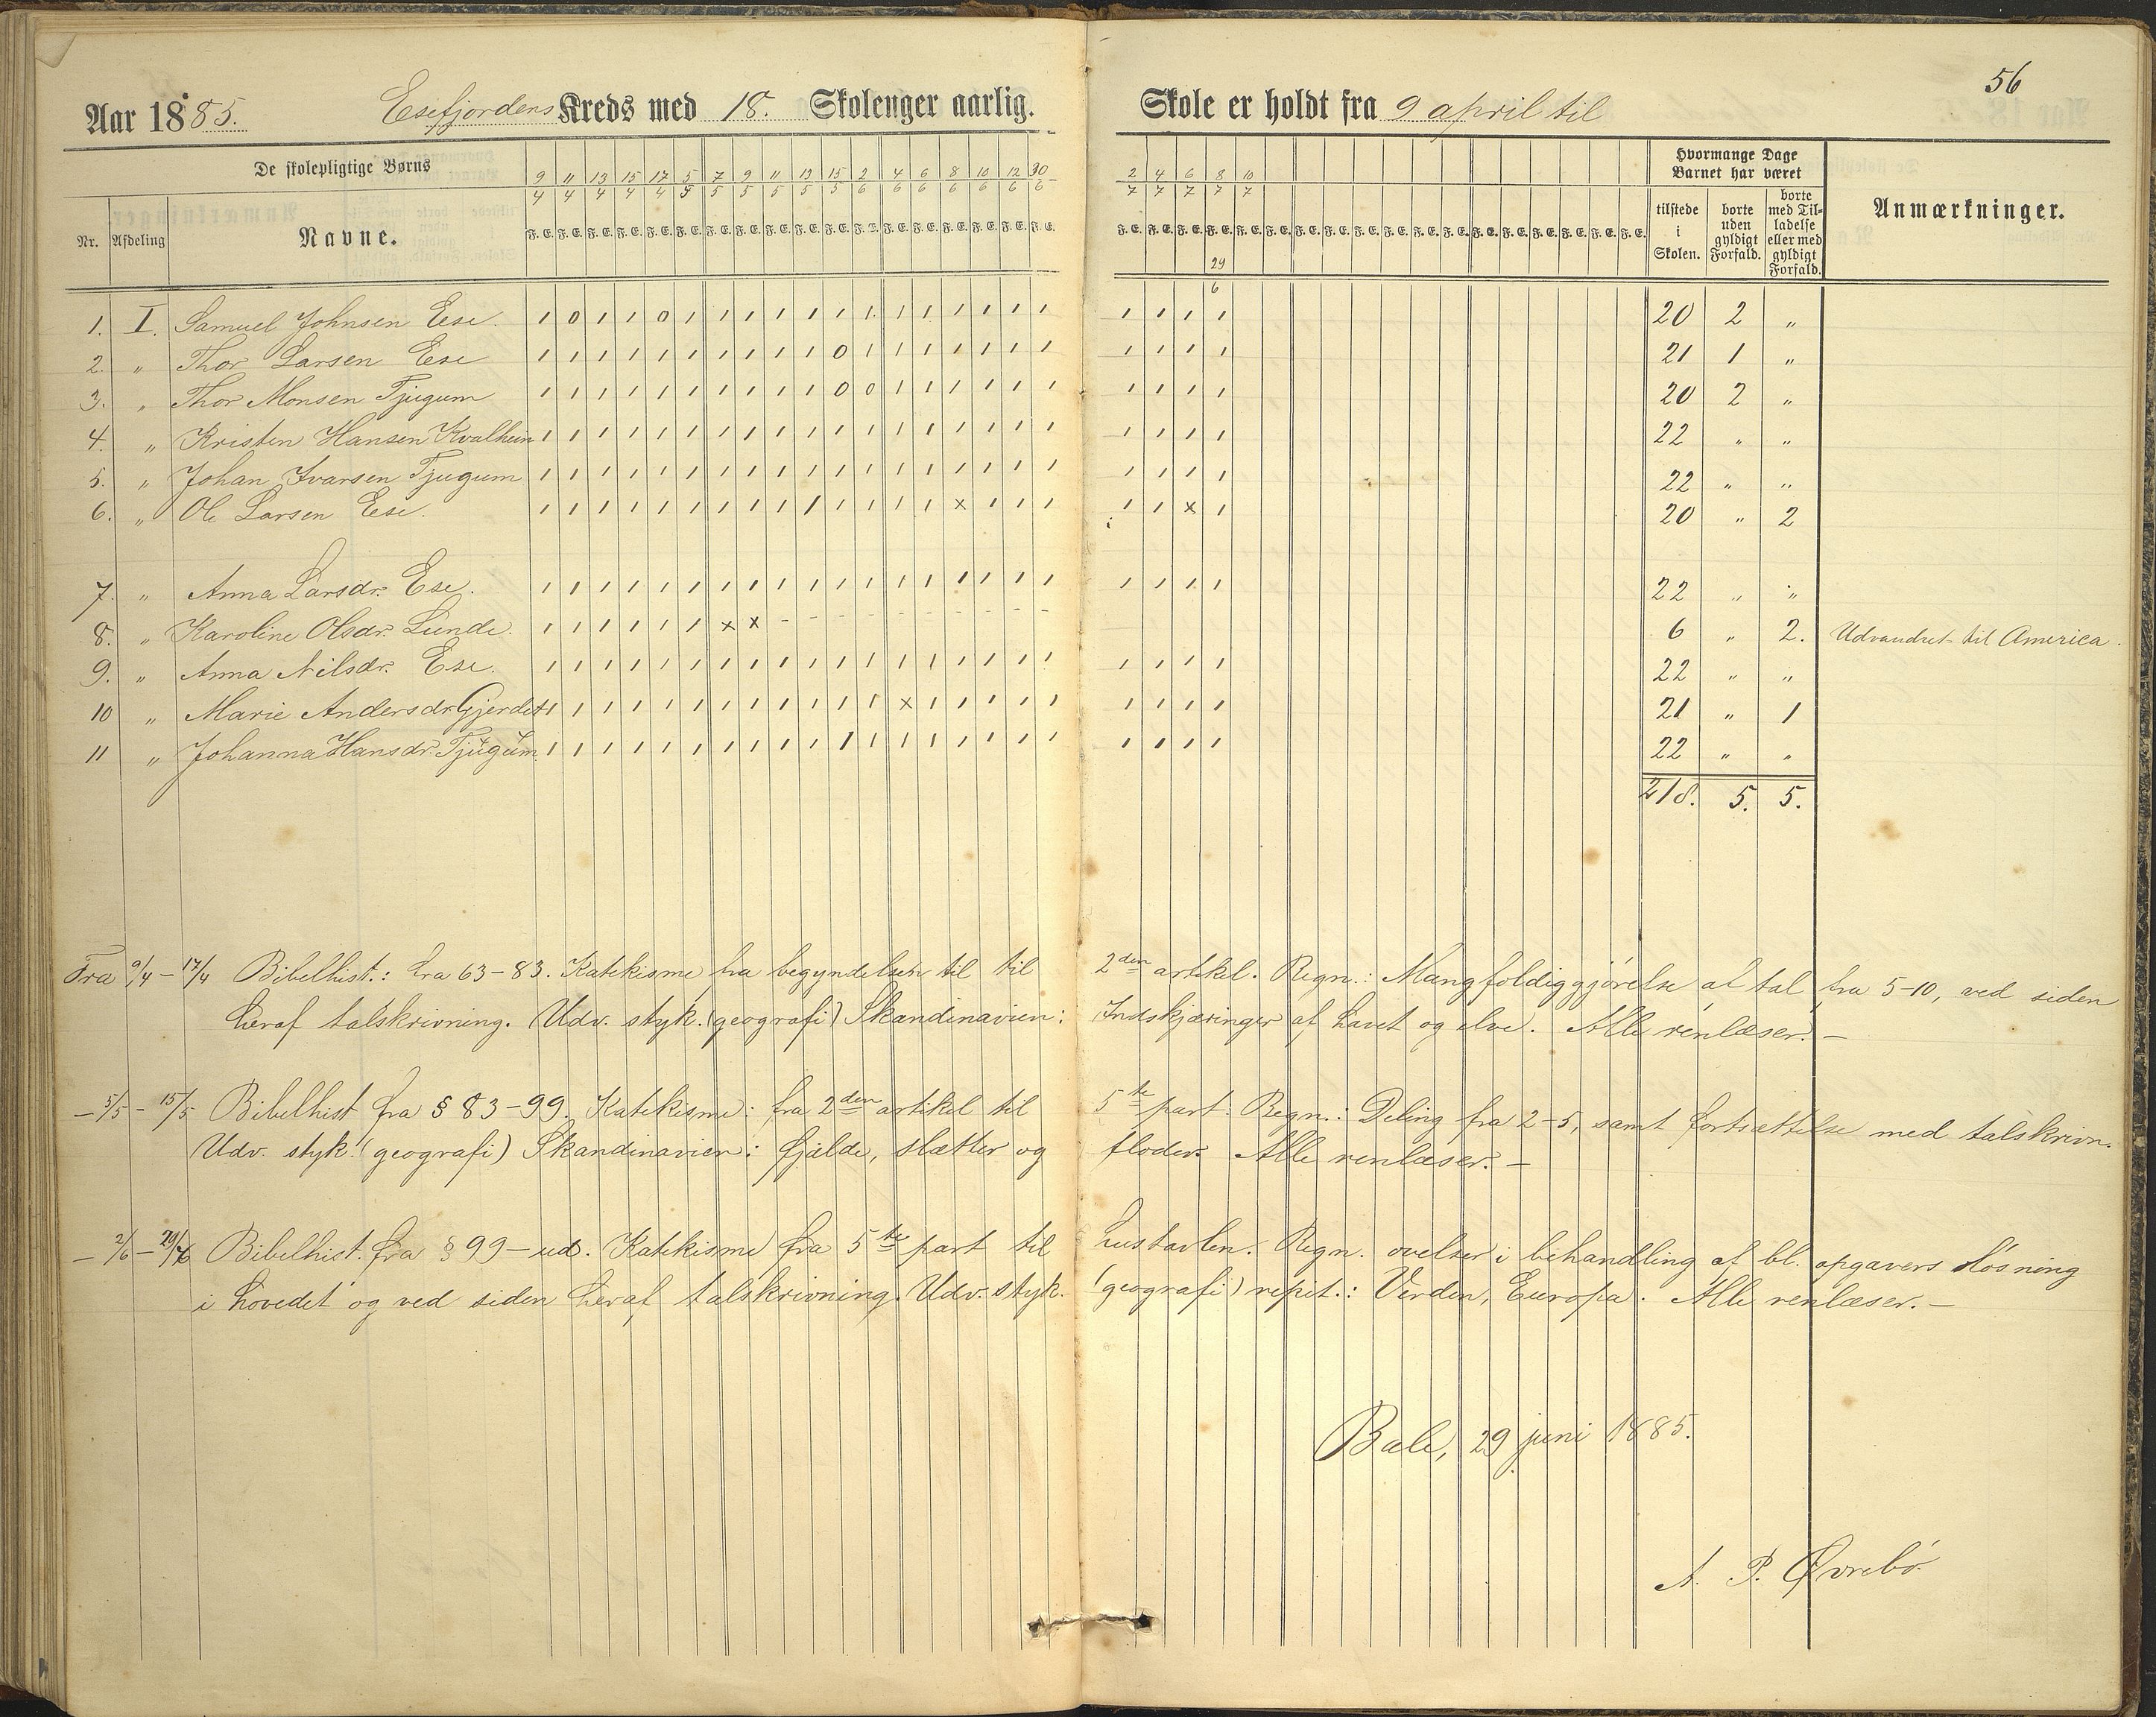 56
Aar 1885. Esefjordens Kreds med 18. Skolenger aarlig. Skole er holdt fra 9 april til
De skolepligtige Børns
Nr. Afdeling Navne.
9/4 11/4 13/4 15/4 17/4 5/5 7/5 9/5 11/5 13/5 15/5 2/6 4/6 6/6 8/6 10/6 12/6 30/6 2/7 4/7 6/7 8/7 10/7
29/6
F. E. F. E. F. E. F. E. F. E. F. E. F. E. F. E. F. E. F. E. F. E. F. E. F. E. F. E. F. E. F. E. F. E. F. E.
F. E. F. E. F. E. F. E. F. E. F. E. F. E. F. E. F. E. F. E. F. E. F. E. F. E. F. E. F. E. F. E. F. E. F. E.
Hvormange Dage Barnet har været
tilstede i Skolen.
borte uden gyldigt Forfald.
borte med Tilladelse eller med gyldigt Forfald.
Anmærkninger.
1. I. Samuel Johnsen Ese. 1 0 1 1 0 1 1 1 1 1 1 1 1 1 1 1 1 1 1 1 1 1 20 2 „
2. „ Thor Larsen Ese 1 1 1 1 1 1 1 1 1 1 0 1 1 1 1 1 1 1 1 1 1 1 21 1 „
3. „ Thor Monsen Tjugum 1 1 1 1 1 1 1 1 1 1 0 0 1 1 1 1 1 1 1 1 1 1 20 2 „
4. „ Kristen Hansen Kvalheim 1 1 1 1 1 1 1 1 1 1 1 1 1 1 1 1 1 1 1 1 1 1 22 „ „
5. „ Johan Ivarsen Tjugum 1 1 1 1 1 1 1 1 1 1 1 1 1 1 1 1 1 1 1 1 1 1 22 „ „
6. „ Ole Larsen Ese. 1 1 1 1 1 1 1 1 1 1 1 1 1 1 x 1 1 1 1 1 x 1 20 „ 2
7. „ Anna Larsdr. Ese. 1 1 1 1 1 1 1 1 1 1 1 1 1 1 1 1 1 1 1 1 1 1 22 „ „
8. „ Karoline Olsdr. Lunde. 1 1 1 1 1 1 x x - - - - - - - - - - 6 „ 2. Udvandret til America.
9. „ Anna Nilsdr. Ese. 1 1 1 1 1 1 1 1 1 1 1 1 1 1 1 1 1 1 1 1 1 1 22 „ „
10 „ Marie Andersdr. Gjerdet 1 1 1 1 1 1 1 1 1 1 1 1 x 1 1 1 1 1 1 1 1 1 21 „ 1
11 „ Johanna Hansdr. Tjugum 1 1 1 1 1 1 1 1 1 1 1 1 1 1 1 1 1 1 1 1 1 1 22 „ „
218. 5. 5.
Fra 9/4 – 17/4 Bibelhist.: fra 63–83. Katekisme fra begyndelsen til til 2den artikel. Regn.: Mangfoldiggjørelse af tal fra 5–10, ved siden
heraf talskrivning. Udv. styk. (geografi) Skandinavien: Indskjæringer af havet og elve. Alle renlæser. –
– 5/5 – 15/5 Bibelhist fra § 83–99. Katekisme: fra 2den artikel til 5te part. Regn.: Deling fra 2–5, samt fortsættelse med talskrivn.
Udv. styk. (geografi) Skandinavien: fjælde, sletter og floder. Alle renlæser. –
– 2/6 – 29/6 Bibelhist. fra § 99 – ud. Katekisme fra 5te part til hustavlen. Regn. øvelser i behandling af bl. opgavers løsning
i hovedet og ved siden heraf talskrivning. Udv. styk. (geografi) repet.: Verden, Europa. Alle renlæser. –
Bale, 29 juni 1885.
A. P. Øvrebø.